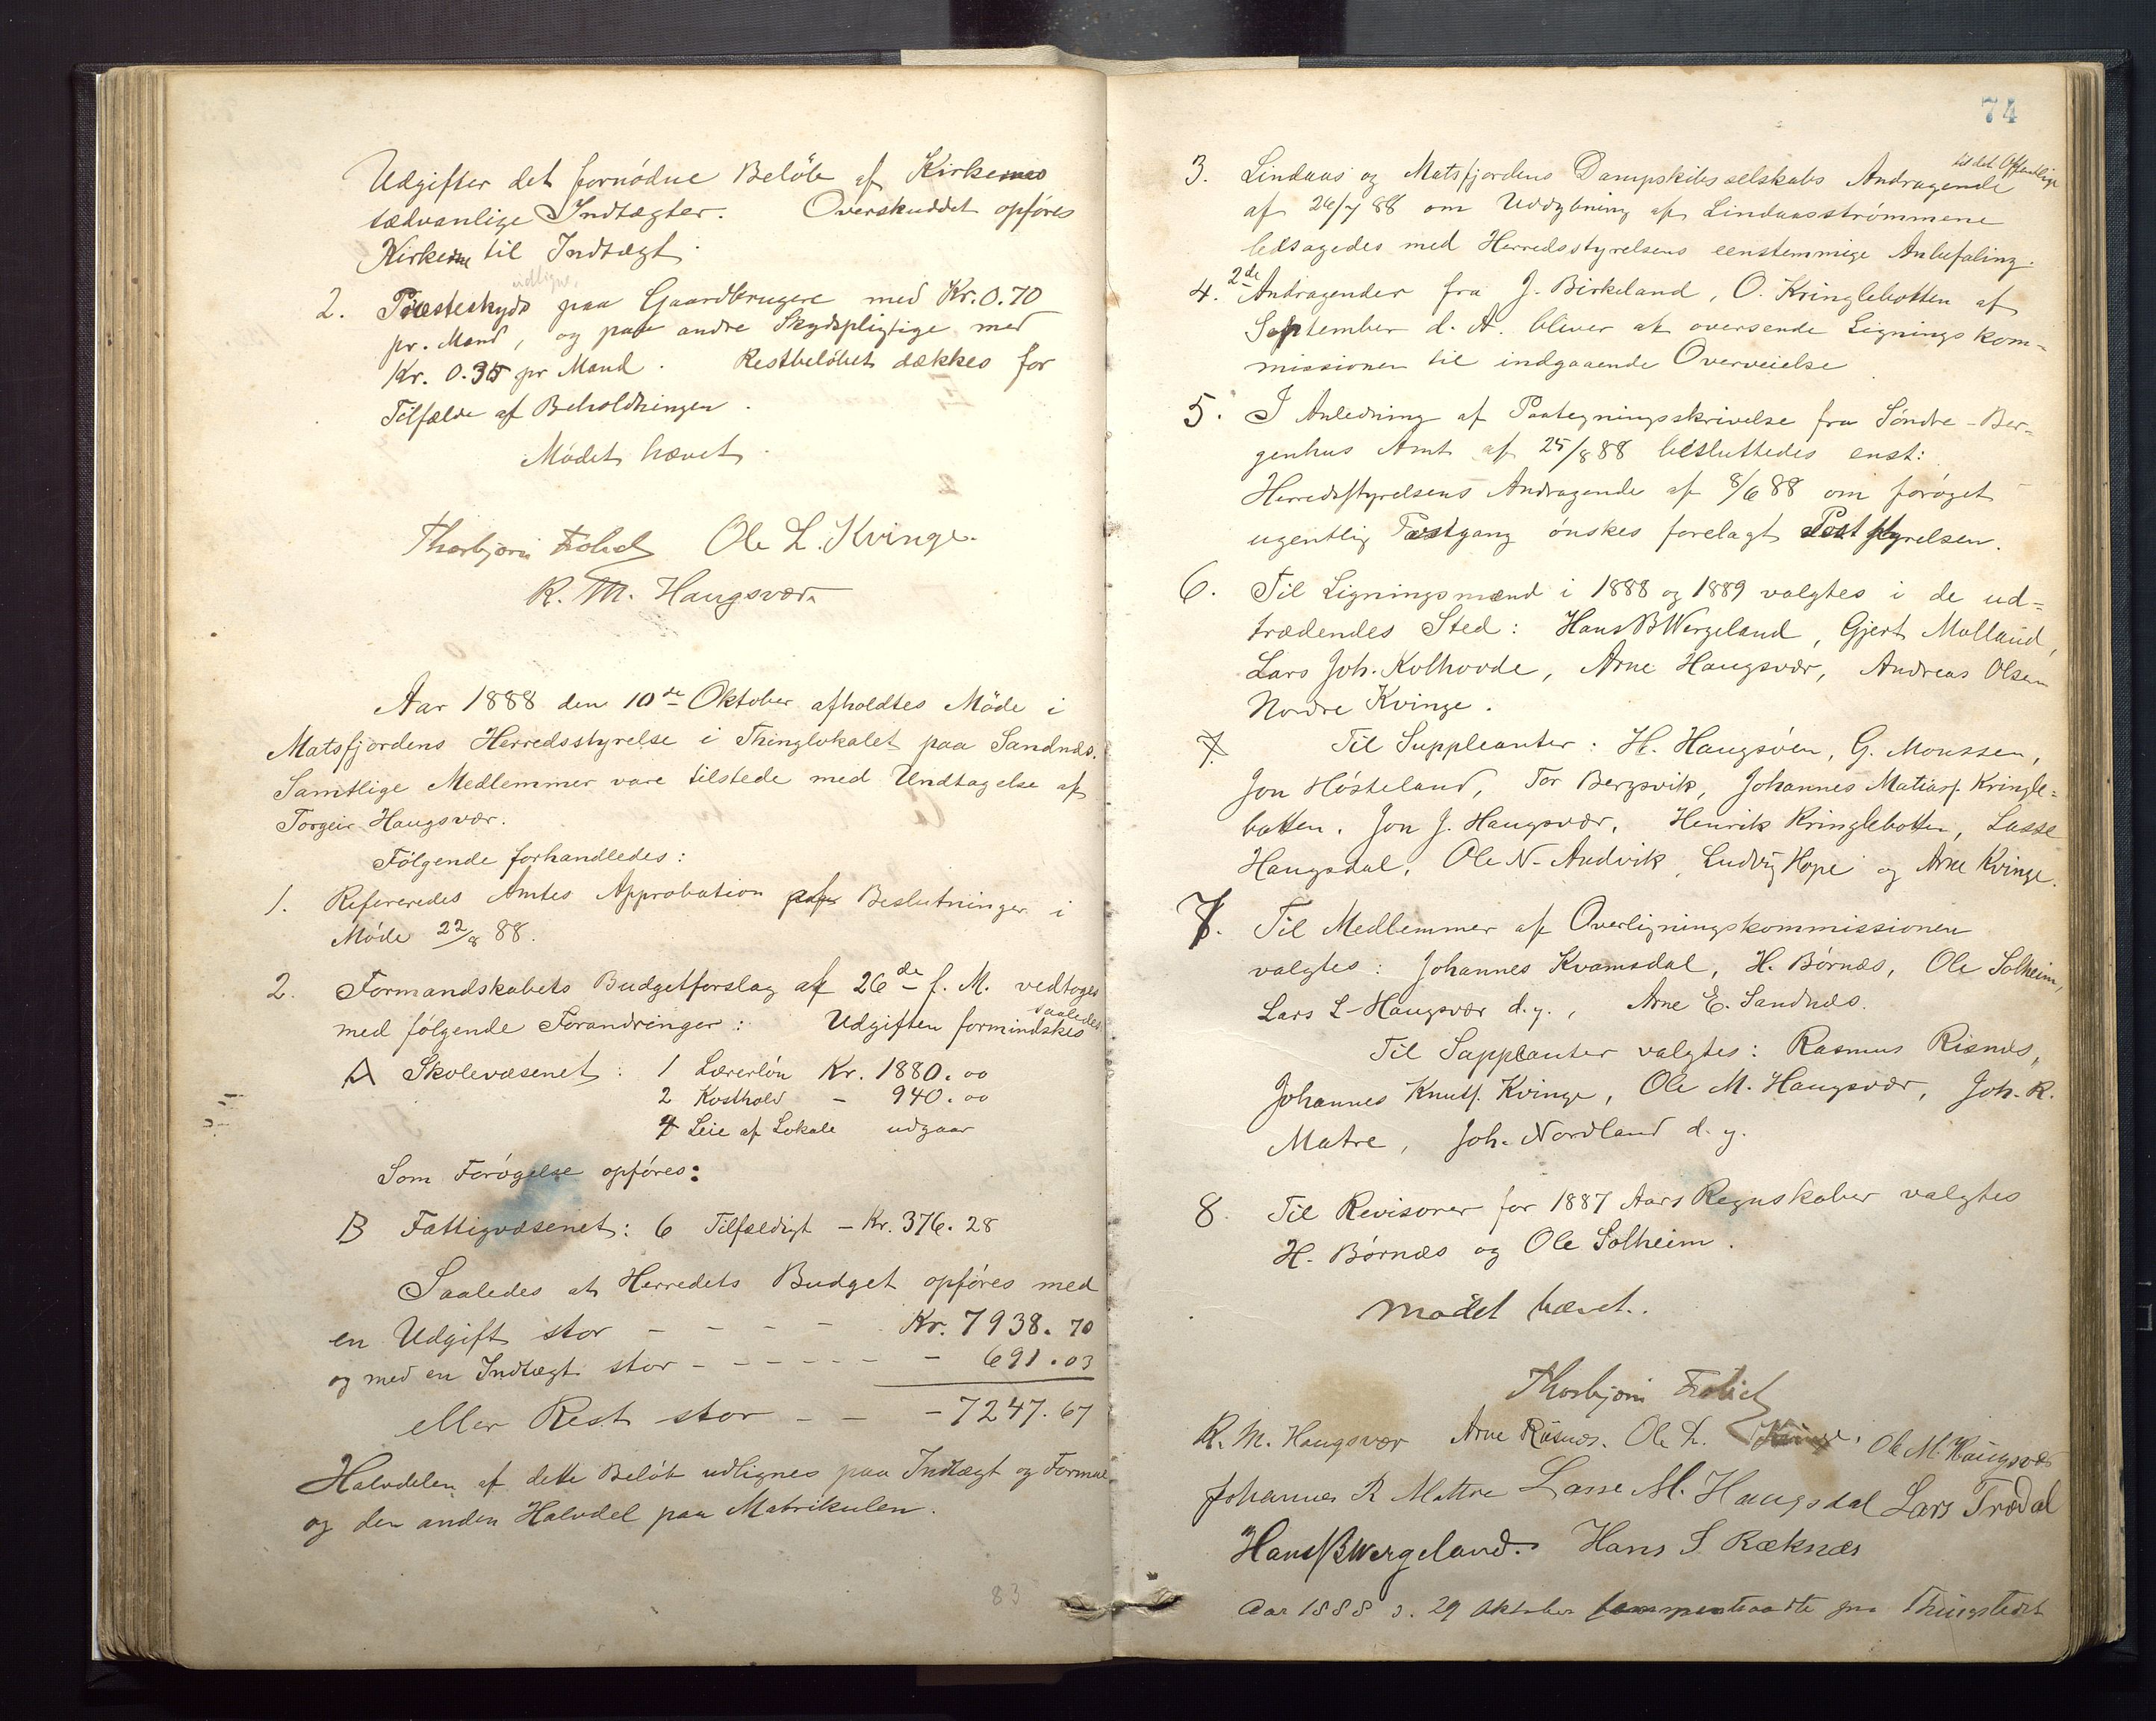 Udgifter det fornødne Beløb af Kirkernes
sædvanlige Indtægter. Overskuddet opføres
Kirkerne til Indtægt.
udlignes
2. Præsteskyds paa Gaardbrugere med Kr. 0.70
pr. Mand, og paa andre Skydspligtige med
Kr. 0.35 pr Mand. Restbeløbet dækkes for
Tilfælde af Beholdningen.
Mødet hævet.
Thorbjørn Ole L. Kvinge.
R. M. Haugsvær
Aar 1888 den 10de Oktober afholdtes Møde i
Matsfjordens Herredsstyrelse i Thinglokalet paa Sandnæs.
Samtlige Medlemmer vare tilstede med Undtagelse af
Torgeir Haugsvær.
Følgende forhandledes:
1. Refereredes Amtes Approbation paa Beslutninger i
Møde 22/8 88.
2. Formandskabets Budgetforslag af 26de f. M. vedtoges
saaledes
med følgende Forandringer: Udgiften formindskes
A Skolevæsenet: 1 Lærerløn Kr. 1880.00
2 Kosthold - 940.00
4 Leie af Lokale udgaar
Som Forøgelse opføres:
B Fattigvæsenet: 6 Tilfældigt - Kr. 376.28
Saaledes at Herredets Budget opføres med
en Udgift stor - - - - Kr. 7938.70
og med en Indtægt stor - - - - - - 691.03
eller Rest stor - - - 7247.67
Halvdelen af dette Beløb udlignes paa Indtægt og Formue
og den anden Halvdel paa Matrikulen.
83
74
til det Offentlige
3. Lindaas og Matsfjordens Dampskibsselskabs Andragende
af 26/7 88 om Uddybning af Lindaasstrømmene
ledsagedes med Herredsstyrelsens eenstemmige Anbefaling.
4. 2de Andragender fra J. Birkeland, O. Kringlebotten af
September d. A. bliver at oversende Ligningskom=
missionen til indgaaende Overveielse
5. I Anledning af Paategningsskrivelse fra Søndre-Ber=
genhus Amt af 25/8 88 besluttedes enst:
Herredsstyrelsens Andragende af 8/6 88 om forøget
ugentlig Postgang ønskes forelagt Poststyrelsen.
6. Til Ligningsmænd i 1888 og 1889 valgtes i de ud=
trædendes Sted: Hans B Wergeland, Gjert Molland,
Lars Joh. Kolhovde, Arne Haugsvær, Andreas Olsen
Nordre Kvinge.
7. Til Suppleanter: H. Haugsøen, G. Monssen,
Jon Høsteland, Tor Bergsvik, Johannes Matiasf. Kringle=
botten, Jon J. Haugsvær, Henrik Kringlebotten, Lasse
Haugsdal, Ole N. Andvik, Ludvig Hope og Arne Kvinge.
7. Til Medlemmer af Overligningskommissionen
valgtes: Johannes Kvamsdal, H. Børnæs, Ole Solheim,
Lars L Haugsvær d.y., Arne E. Sandnæs.
Til Suppleanter valgtes: Rasmus Risnæs,
Johannes Knutf. Kvinge, Ole M. Haugsvær, Joh. R.
Matre, Joh. Nordland d. y.
8. Til Revisorer for 1887 Aars Regnskaber valgtes
H. Børnæs og Ole Solheim.
Mødet hævet.
Thorbjørn
R. M. Haugsvær Arne Risnæs. Ole L. Kvinge. Ole M. Haugsvær
Johannes R Mattre Lasse M. Haugsdal Lars Trædal
Hans B Wergeland. Hans S Ræknæs
Aar 1888 d. 29 Oktober sammentraadte paa Thingstedet